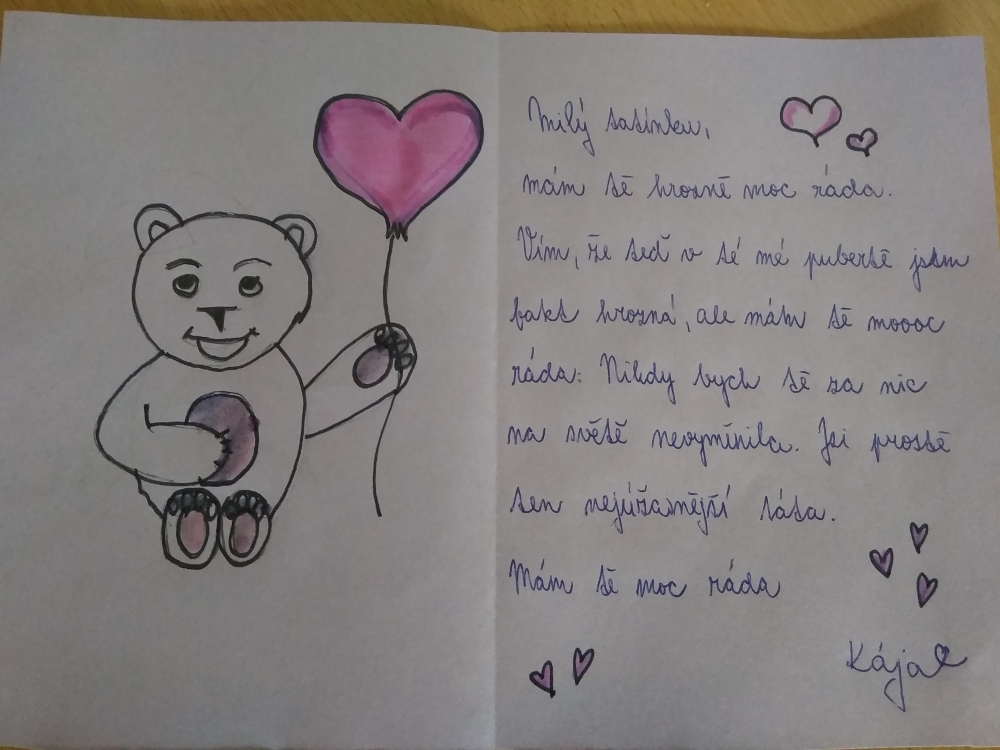 Milý tatínku,
mám tě hrozně moc ráda.
Vím, že teď v té mé pubertě jsem
fakt hrozná, ale mám tě moooc
ráda. Nikdy bych tě za nic
na světě nevyměnila. Jsi prostě
ten nejúžasnější táta.
Mám tě moc ráda
Kája